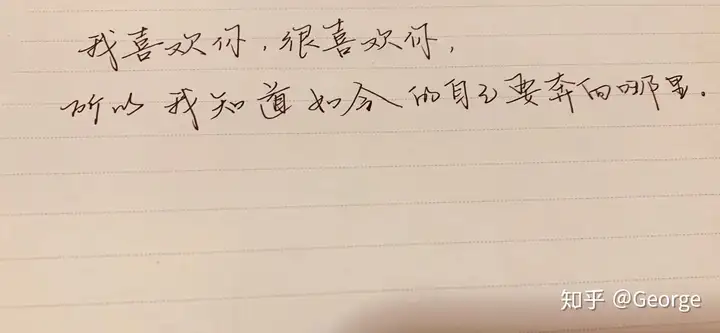 我喜欢你，很喜欢你，
所以我知道如今的自己要奔向哪里．
知乎 @George